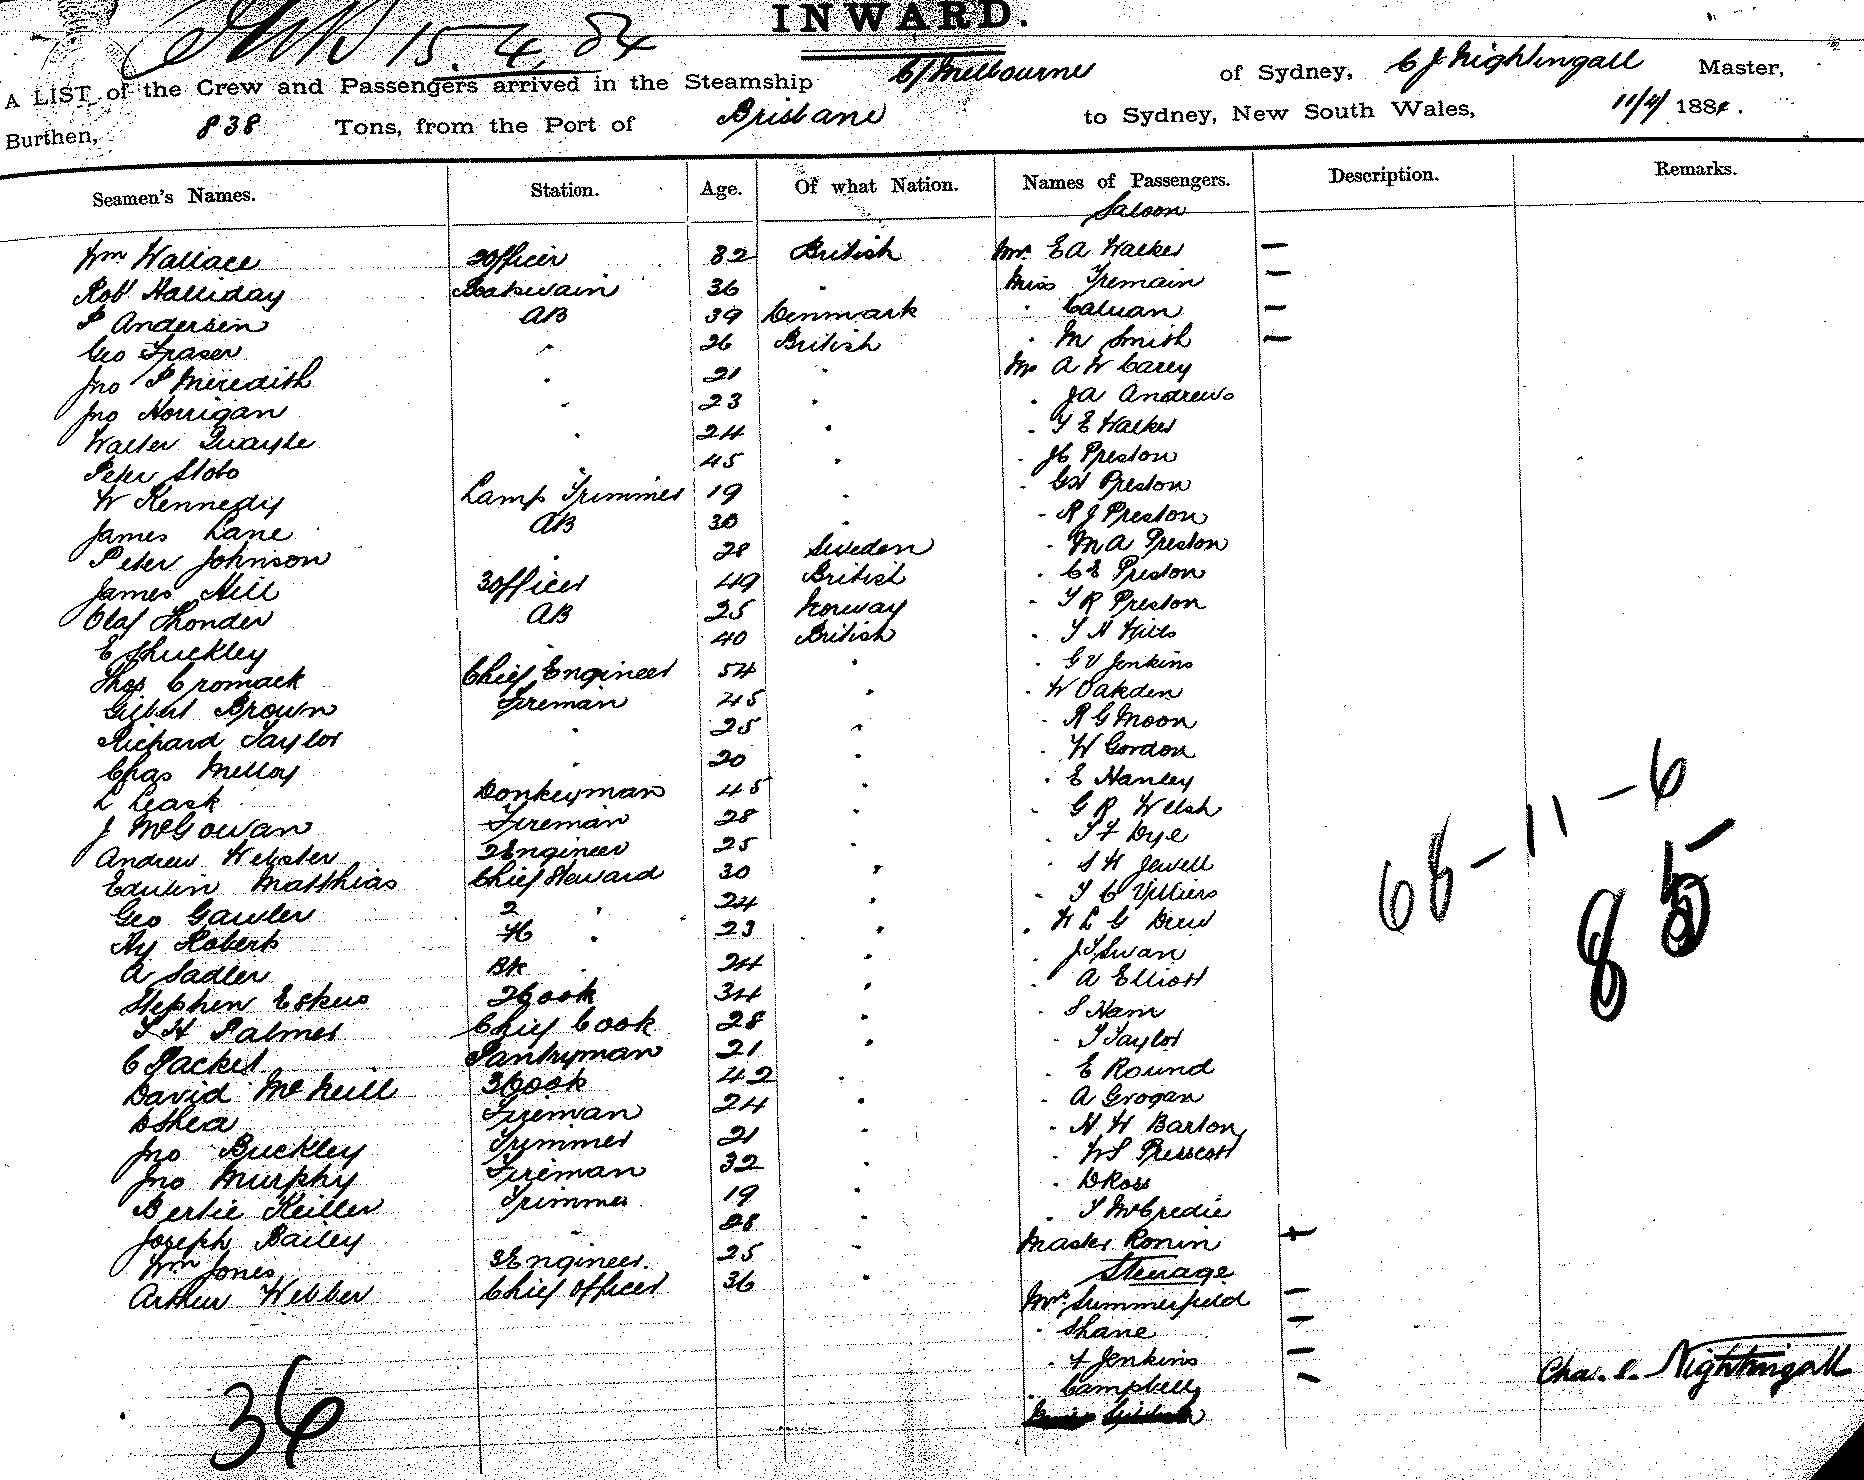 INWARD.
15.4.84
A LIST of the Crew and Passengers arrived in the Steamship C/Melbourne of Sydney, C J Nightingall Master,
Burthen, 838 Tons, from the Port of Brisbane to Sydney, New South Wales, 11/4/ 1884.
Seamen's Names. Station. Age. Of what Nation. Names of Passengers. Description. Remarks.
Saloon
Wm Wallace 2 Officer 32 British Mrs E A Walker —
Robt Halliday Boatswain 36 " Miss Tremain —
P Andersen AB 39 Denmark " —
Geo Fraser " 26 British " M Smith —
Jno P Meredith " 21 " Mr A W Carey
Jno Horrigan " 23 " " J A Andrews
Walter Quayle " 24 " " T E Walker
Peter Stobo 45 " " J C Preston
W Kennedy Lamp Trimmer 19 " " G H Preston
James Lane AB 30 " " R J Preston
Peter Johnson " 28 Sweden " M A Preston
James Hill 3 Officer 49 British " C E Preston
Olaf Thonder AB 25 Norway " T R Preston
E Shuckley " 40 British " T H Hills
Thos Cromack Chief Engineer 54 " " G V Jenkins
Gilbert Brown Fireman 45 " " W Oakden
Richard Taylor " 25 " " R G Moon
Chas Melloy " 20 " " W Gordon
L Leask Donkeyman 45 " " E Hanley
J McGowan Fireman 28 " " G R Welsh
Andrew Webster 2 Engineer 25 " " T F Dye
Edwin Matthias Chief Steward 30 " " S W Jewell
Geo Gawler 2 " 24 " " T C Villiers
Hy Roberts " 23 " " W L G Drew
A Sadler " 24 " " J T Swan
Stephen 2 Cook 34 " " A Elliott
T H Palmer Chief Cook 28 " " S Ham
C Packer Pantryman 21 " " T Taylor
David McNeill 3 Cook 42 " " E Round
D Shea Fireman 24 " " A Grogan
Jno Buckley Trimmer 21 " " H W Barton
Jno Murphy Fireman 32 " " W S Presscott
Bertie Keiller Trimmer 19 " " D Ross
Joseph Bailey " 28 " " T McCredie
Wm Jones 3 Engineer 25 " Master Ronin
Arthur Webber Chief Officer 36 "
Steerage
Mrs Summerfield —
" Shane —
" Jenkins —
" Campbell —
36
66 – 11 – 6
85
Chas. E. Nightingall